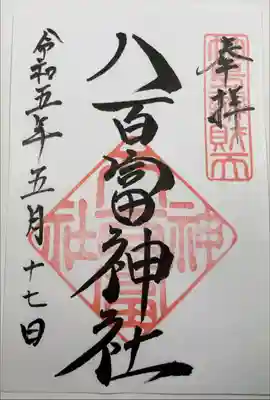 奉拝
八百富神社
令和五年五月十七日